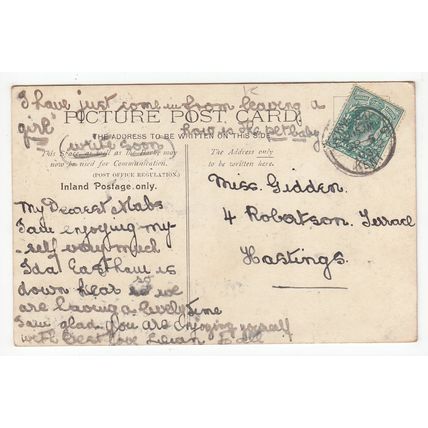 I have just come in from leaving a
girl
how is the pet baby
(write soon)
PICTURE POST CARD.
THE ADDRESS TO BE WRITTEN ON THIS SIDE
This Space, as well as the Back, may
now be used for Communication.
(POST OFFICE REGULATION.)
Inland Postage only.
The Address only
to be written here.
My Dearest Mabs
I am enjoying my-
-self very much
Ida Eastham is
down hear so we
are having a lovely time
I am glad you are enjoying yourself
with best love to all
Miss. Gidden.
4 Robertson Terrace
Hastings.